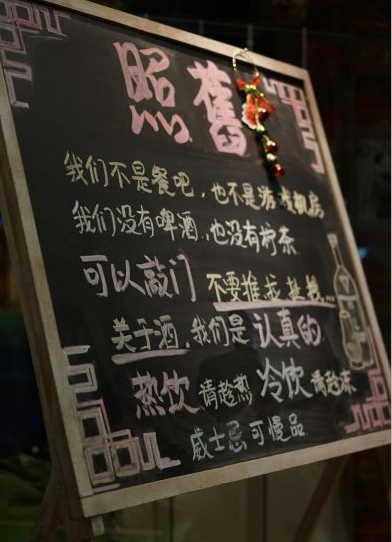 照舊
我们不是餐吧，也不是游戏机房
我们没有啤酒，也没有柠茶
可以敲门 不要推我 尴尬...
关于酒，我们是认真的
热饮请趁热 冷饮请趁冻
威士忌可慢品